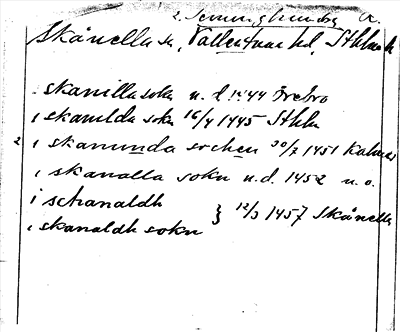 2 Seminghundra A.
Skånella sn, Vallentuna hd, Sthlms l.
skanilla sokn u.d. 1344 Örebro
i skamilda sokn 16/4 1445 Sthlm
2 i skanunda sochen 30/7 1451 Kalmar
i skanalla sokn u.d. 1452 u.o.
i schanaldh
} 12/3 1457 Skånella
i skanaldh sokn